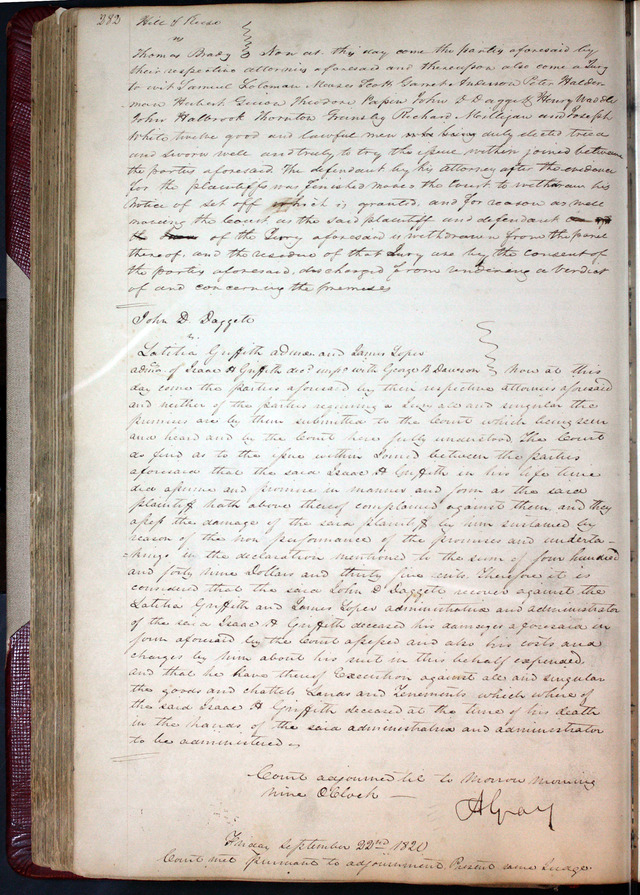 282
Hill & Reese
vs
Thomas Brady Now at this day come the parties aforesaid by
their respective attornies aforesaid and thereupon also come a Jury
to wit Samuel Soloman Moses Scott Garret Anderson Peter Halder-
man Herbert Theodore Papin John D Daggett Henry Waddle
John Holbrook Thornton Grimsley Richard Milligan and Joseph
White twelve good and lawful men duly elected tried
and sworn well and truly to try the issue within joined between
the parties aforesaid the defendant by his attorney after the evidence
for the plaintiffs was finished moves the Court to withdraw his
notice of set off which is granted, and for reason as well
moving the Court as the said plaintiff and defendant
of the Jury aforesaid is withdrawn from the panel
thereof, and the residue of that Jury are by the consent of
the parties aforesaid, discharged from rendering a verdict
of and concerning the premises
John D. Daggett
vs
Latitia Griffith admx and James Lopes
admr. of Isaac H Griffith decd. impd. with George B Dawson Now at this
day come the parties aforesaid by their respective attornies aforesaid
and neither of the parties requiring a Jury all and singular the
premises are by them submitted to the Court which being seen
and heard and by the Court here fully understood. The Court
do find as to the issue within Joined between the parties
aforesaid that the said Isaac H Griffith in his life time
did assume and promise in manner and form as the said
plaintiff hath above thereof complained against them and they
assess the damage of the said plaintiff by him sustained by
reason of the non performance of the promises and underta-
-kings in the declaration mentioned to the sum of four hundred
and forty nine Dollars and thirty five cents. Therefore it is
considered that the said John D Daggett recover against the
Latitia Griffith and James Lopes administratrix and administrator
of the said Isaac H Griffith deceased his damages aforesaid in
form aforesaid by the Court assessed and also his costs and
charges by him about his suit in this behalf expended.
and that he have thereof Execution against all and singular
the goods and chattels Lands and Tenements which where of
the said Isaac H Griffith deceased at the time of his death
in the hands of the said administratrix and administrator
to be administered
Court adjourned til to Morrow morning
nine OClock
A Gray
Friday September 22nd 1820
Court met pursuant to adjournment Present same Judge